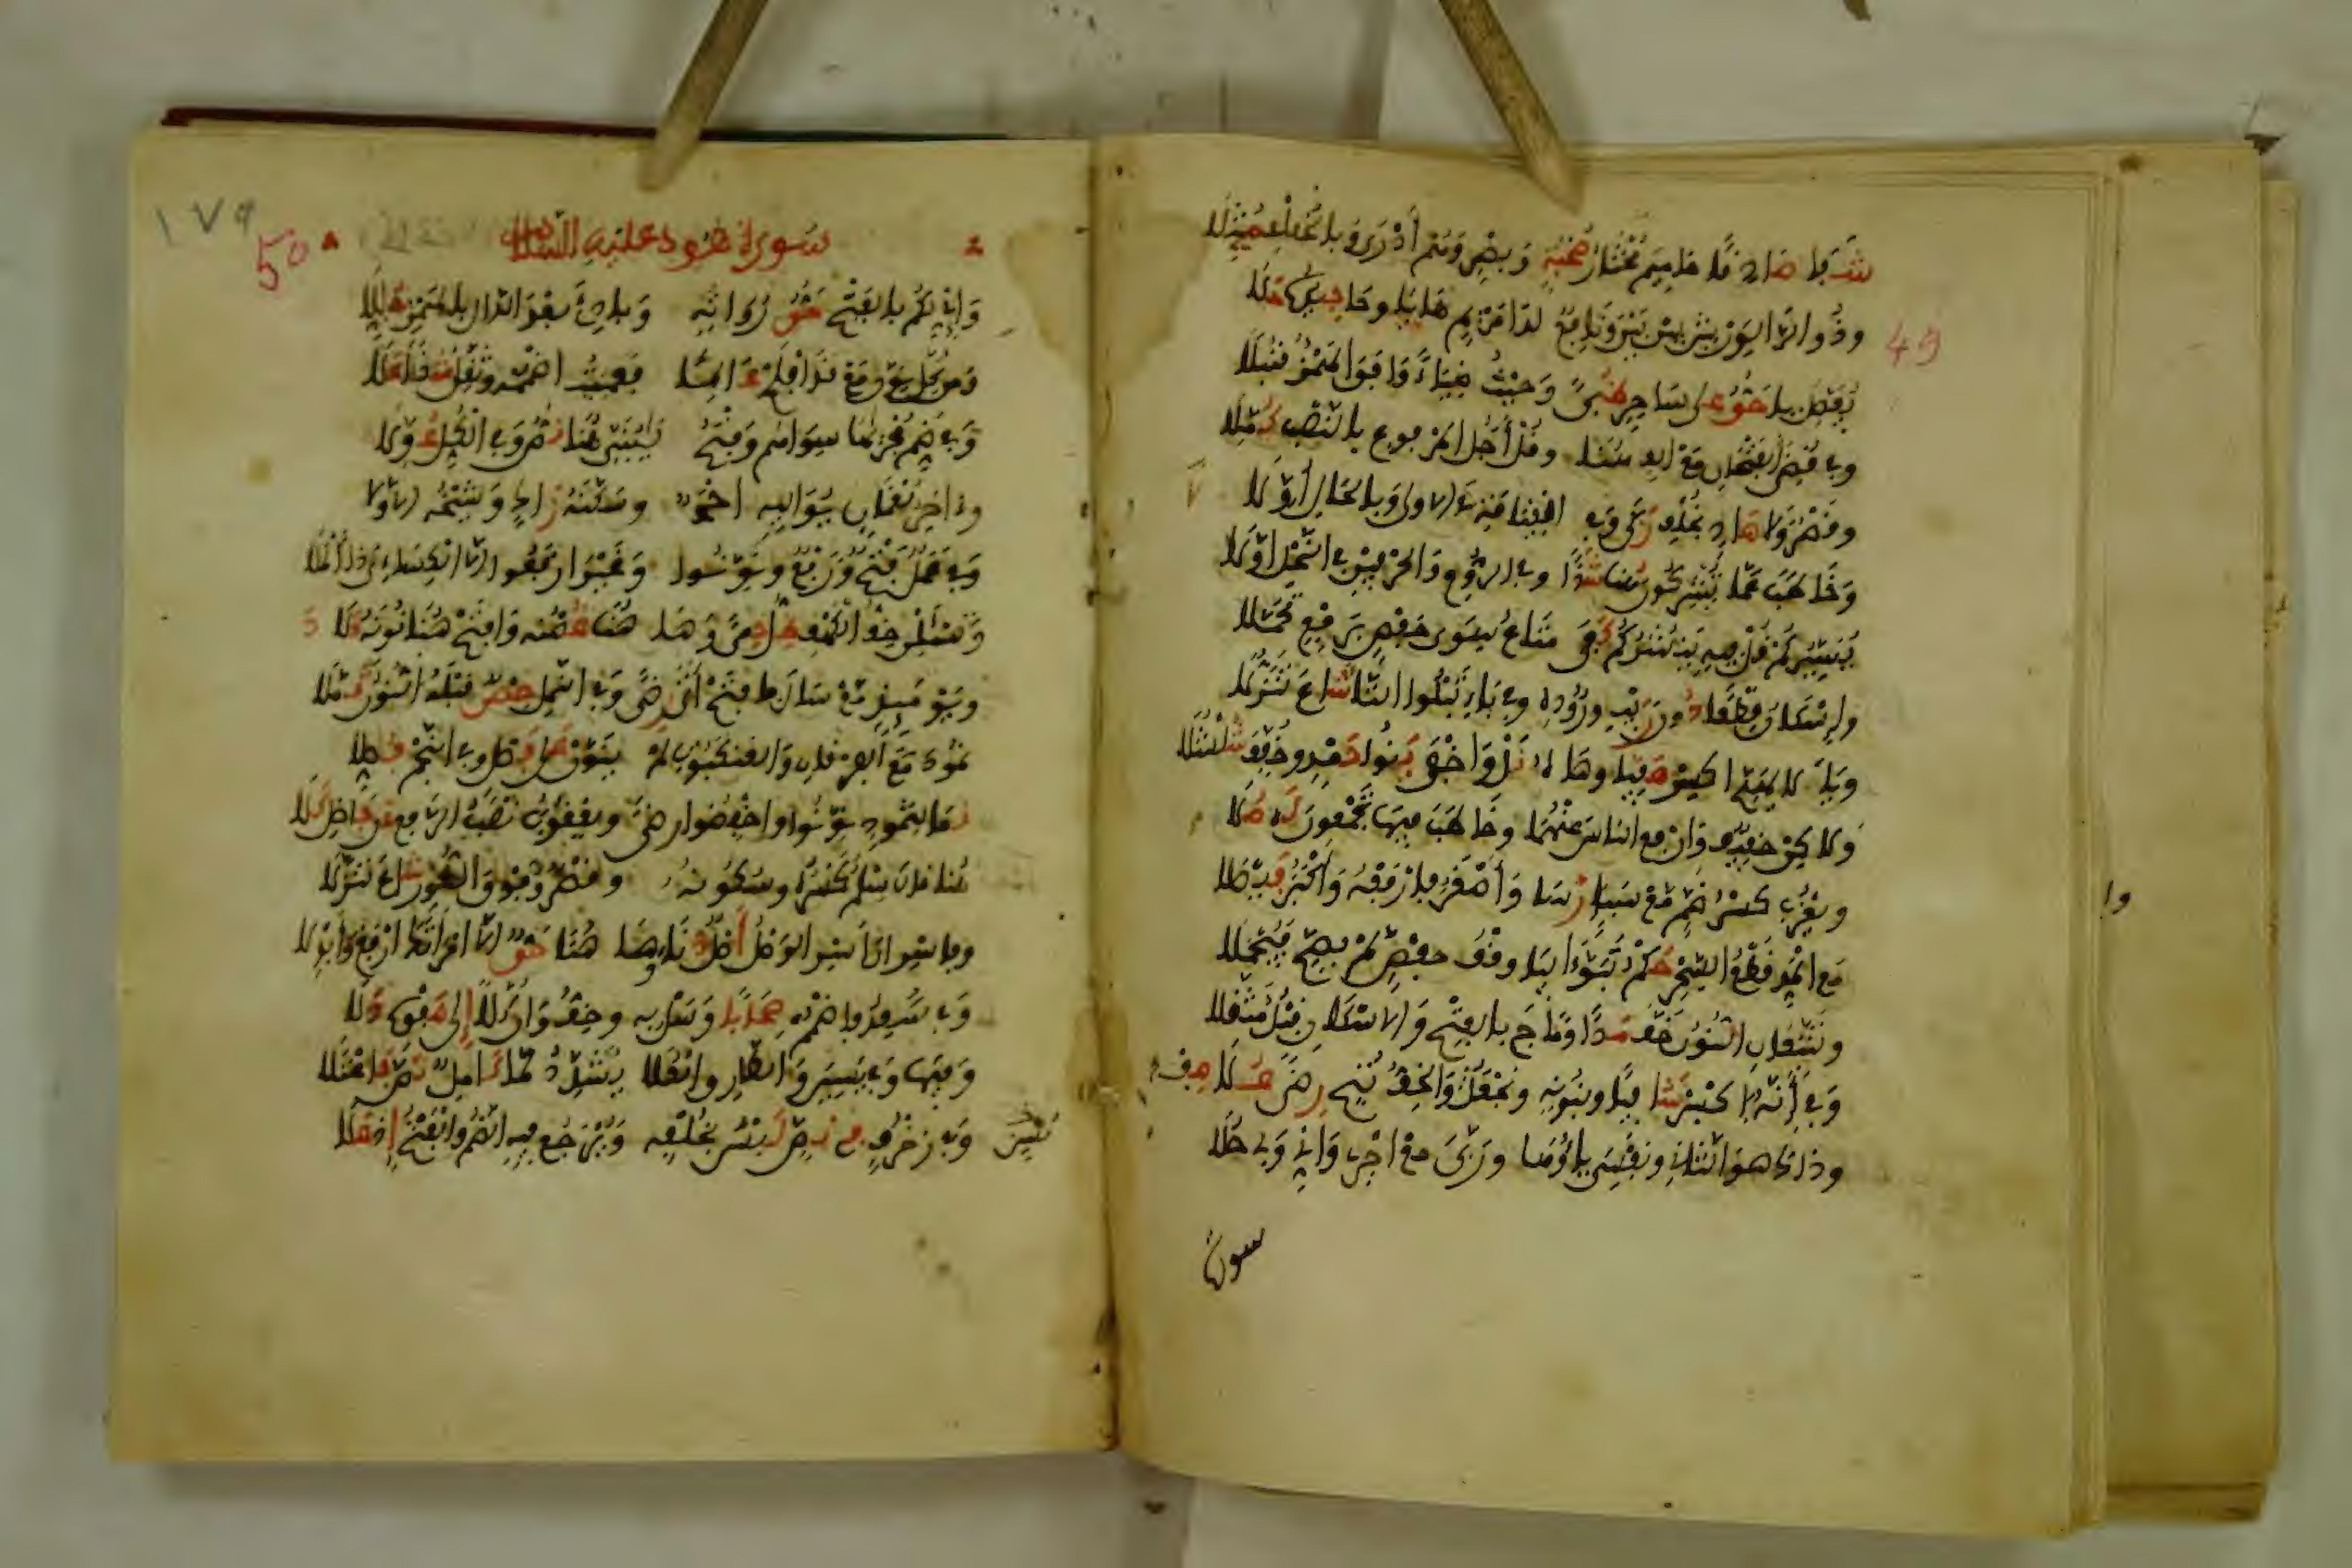 شفا صادقا حاميم مختار صحبة وبصر وهم أدرى وبالخلف مثلا
49
وذو الرا لورش بين بين ونافع لدا مريم هايا وحا جيده حلا
نفصل يا حق علا ساحر ظبى وحيث ضياء وافق الهمز قنبلا
وفي قضي الفتحان مع ألف هنا وقل أجل المرفوع بالنصب كملا
وقصر ولا هاد بخلف زكى وفي القيامة لا الأولى وبالحال أولا
وخاطب عما يشركون هنا شذا وفي الروم والحرفين في النحل أولا
يسيركم قل فيه ينشركم كفى متاع سوى حفص برفع تحملا
وإسكان قطعا دون ريب وروده وفي باء تبلوا التا شاع تنزلا
ويا لا يهدي اكسر صفيا وهاه نل وأخفى بنوا حمد وخفف شلشلا
ولكن خفيف وارفع الناس عنهما وخاطب فيها يجمعون له ملا
ويعزب كسر الضم مع سبا رسا وأصغر فارفعه وأكبر فيصلا
مع المد قطع السحر حكم تبوءا بيا وقف حفص لم يصح فيحملا
وتتبعان النون خف مدا وماج بالفتح والإسكان قبل مثقلا
وفي أنه اكسر شافيا وبنونه ونجعل صف والخف ننج رضى علا
وذاك هو الثاني ونفسي ياؤها وربي مع أجري وإني ولي حلا
سورة
١٧٩
50
سورة هود عليه السلام
وإني لكم بالفتح حق رواته وبادئ بعد الدال بالهمز حللا
ومن كل نون مع قد أفلح عالما فعميت اضممه وثقل شذا علا
وفي ضم مجراها سواهم وفتح يا بني هنا نص وفي الكل عولا
وءاخر لقمان يواليه أحمد وسكنه زاك وشيخه الأولا
وفي عمل فتح ورفع ونونوا وغير ارفعوا إلا الكسائي ذا الملا
وتسئلن خف الكهف ظل حمى وها هنا غصنه وافتح هنا نونه دلا
ويومئذ مع سال فافتح أتى رضى وفي النمل حصن قبله النون ثملا
ثمود مع الفرقان والعنكبوت لم ينون على فصل وفي النجم فصلا
نما لثمود نونوا واخفضوا رضى ويعقوب نصب الرفع عن فاضل كلا
هنا قال سلم كسره وسكونه وقصر وفوق الطور شاع تنزلا
وفاسر ان اسر الوصل أصل دنا وها هنا حق الا امراتك ارفع وأبدلا
وفي سعدوا فاضمم صحابا وسل به وخف وان كلا إلى صفوه دلا
وفيها وفي يسين والطارق العلا يشدد لما كامل نص فاعتلا
وفي زخرف في نص لسن بخلفه ويرجع فيه الضم والفتح إذ علا